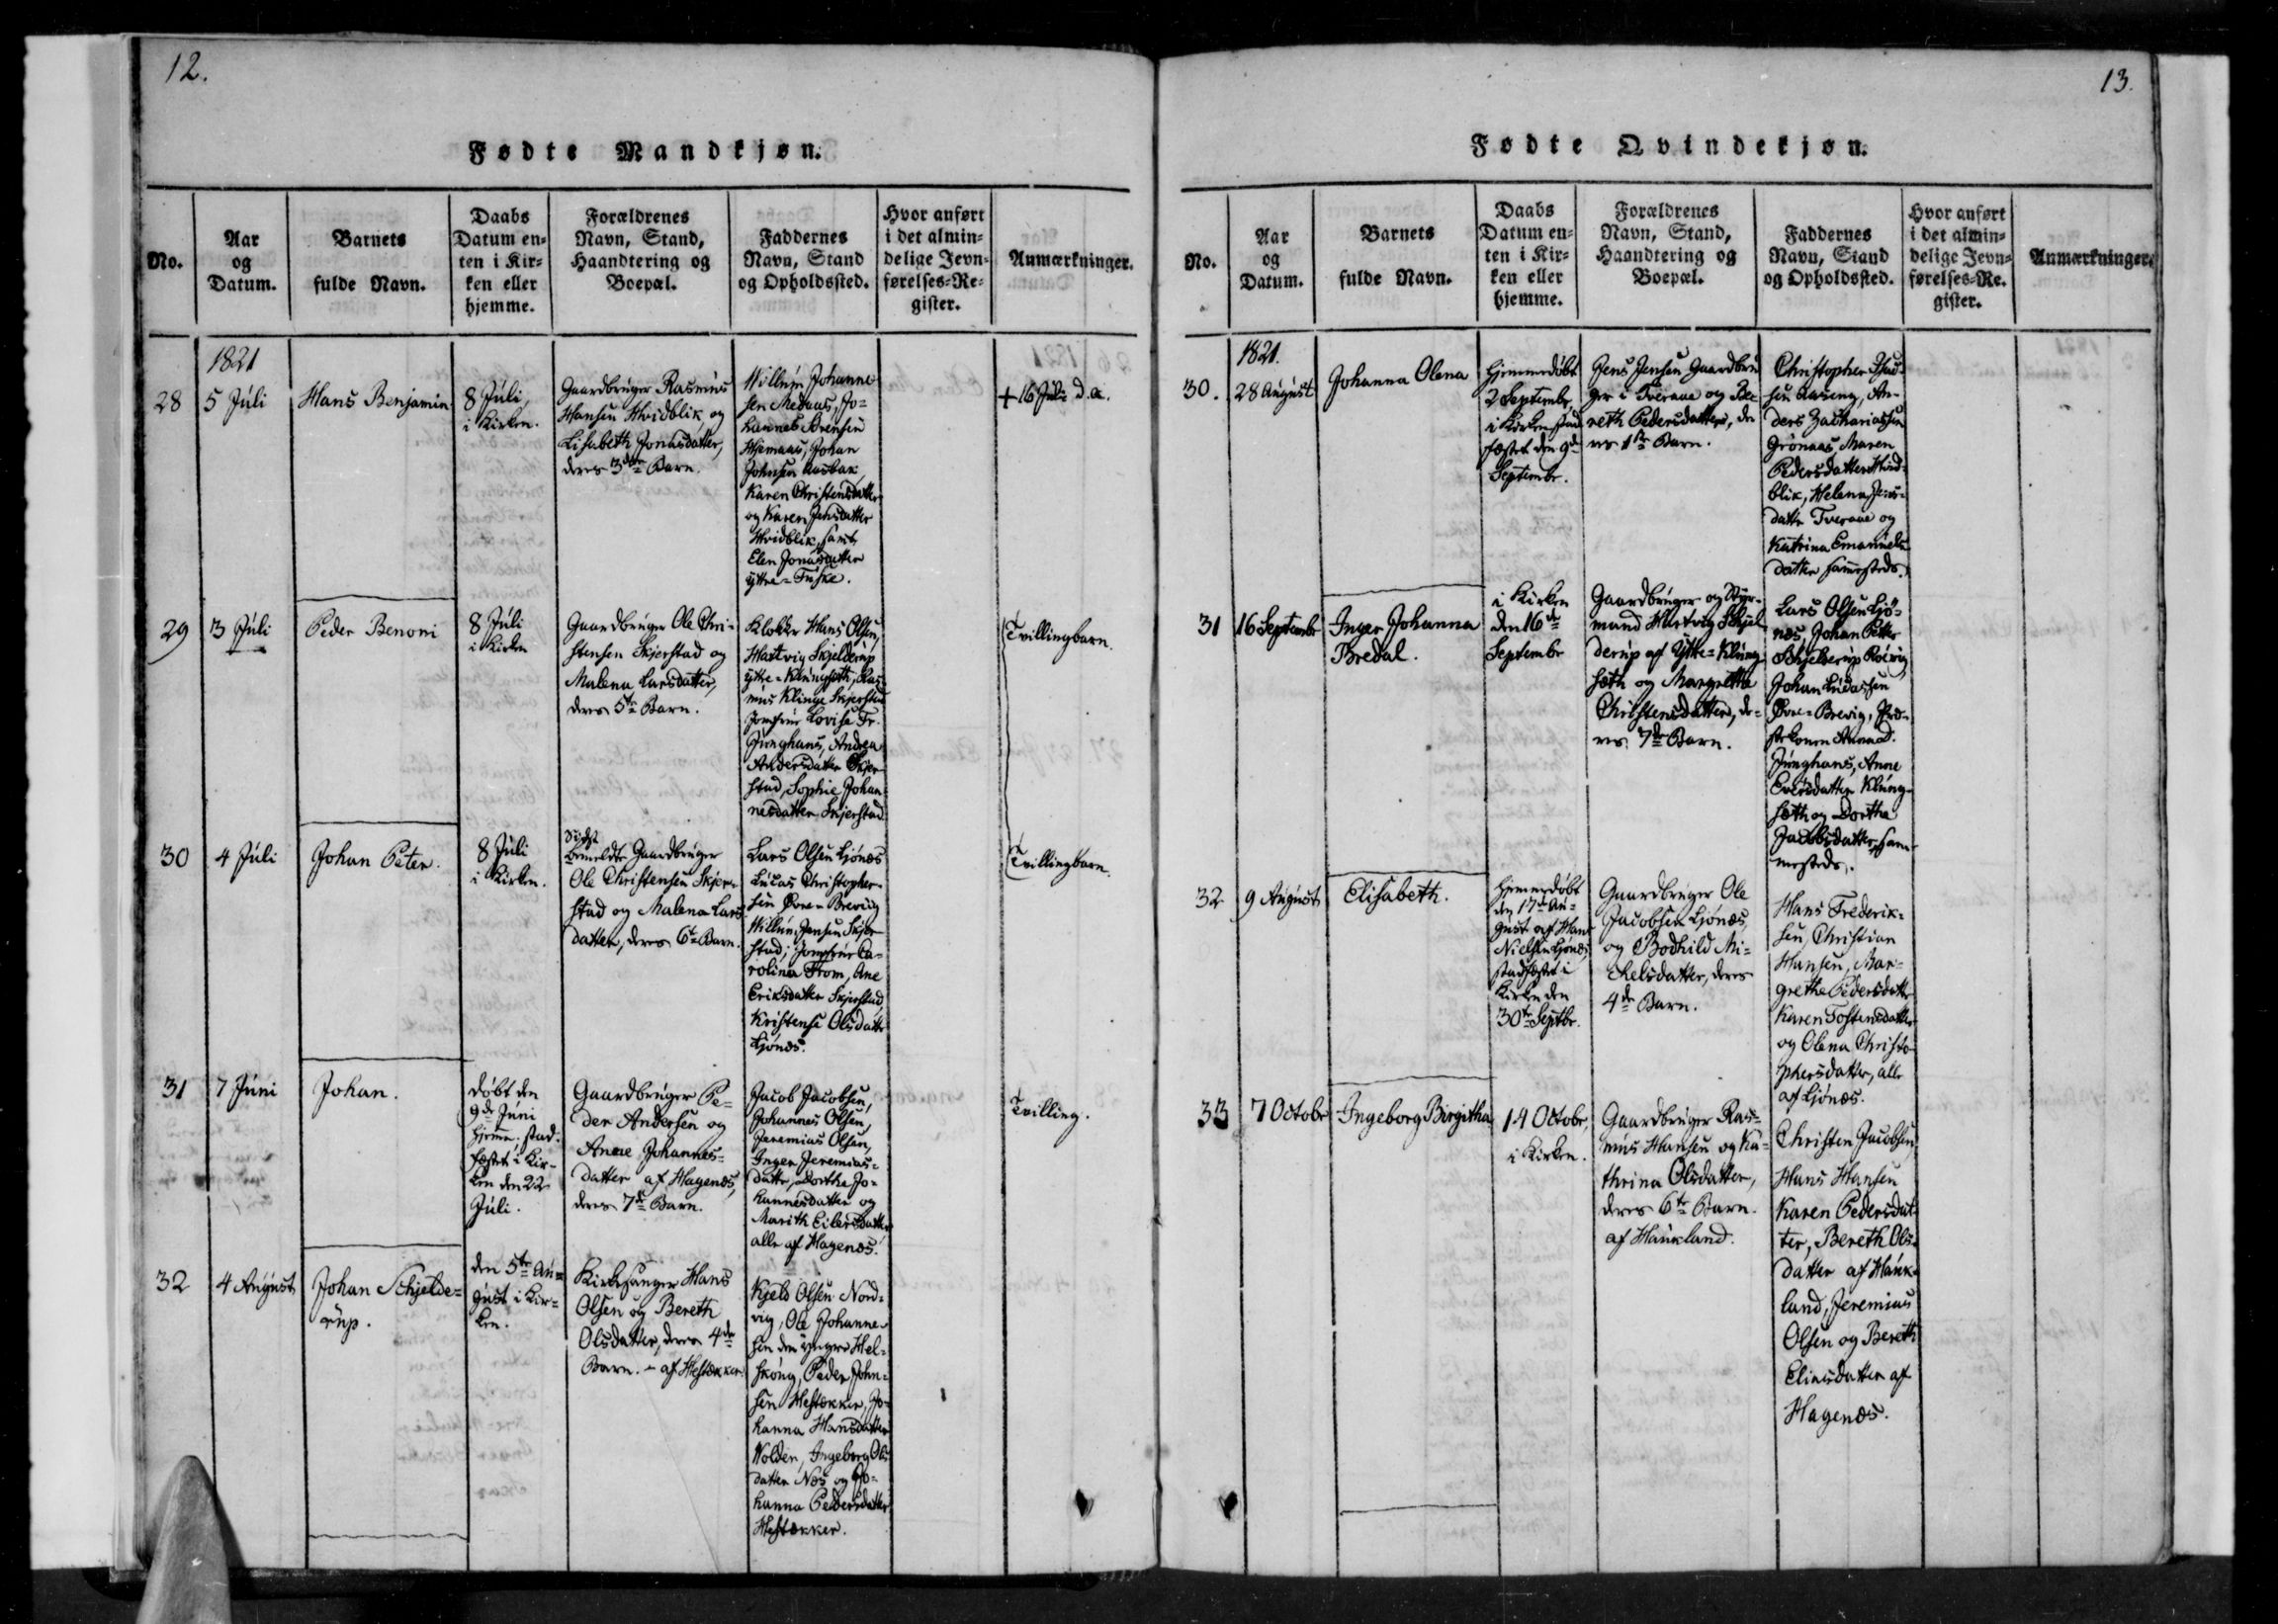 12.
Fødte Mandkjøn.
No.
Aar
og
Datum.
Barnets
fulde Navn.
Daabs
Datum en-
ten i Kir-
ken eller
hjemme.
Forældrenes
Navn, Stand,
Haandtering og
Boepæl.
Faddernes
Navn, Stand
og Opholdssted.
Hvor anført
i det almin-
delige Jevn-
førelses-Re-
gister.
Anmærkninger.
1821
28
5 Júli
Hans Benjamin
8 Júli,
i Kirken.
Gaardbruger Rasmus
Hansen Hvidblik og
Lisabeth Jonasdatter,
deres 3die Barn.
Willum Johanne
sen Mednaas, Jo-
hannes Sørensen
Johan
Johnsen Aasbak
Karen Christensdatter
og Karen Jensdatter
Hvidblik, samt
Elen Jonasdatter
yttre-Fuske.
+ 16 Júli d. a.
29
3 Júli
Peder Benoni
8 Júli
i Kirken
Gaardbrúger Ole Chri-
stensen Skjerstad og
Malena Larsdatter,
deres 5te Barn.
Klokker Hans Olsen,
Hartvig Skjelderup
yttre-Klúngseth, Ras-
mus Klinge Skjerstad
Jomfrue Lovise Fr.
Junghans, Andrea
Andersdatter Skjer-
stad, Sophie Johan-
nesdatter Skjerstad
Tvillingbarn.
30
4 Júli
Johan Peter.
8 Júli
i Kirken.
Sidst
bemeldte Gaardbrúger
Ole Christensen Skjer-
stad og Malena Lars
datter, deres 6te Barn.
Lars Olsen Ljönæs
Lúcas Christopher-
sen Øvre-Brevig
Willúm Jensen Skjer-
stad; Jomfrúe Ca-
rolina From, Ane
Eriksdatter Skjerstad
Kristense Olsdatter
Ljönæs.
Tvillingbarn.
31
7 Júni
Johan.
døbt den
9de Júni
hjemme. stad-
fæstet i Kir-
ken den 22
Júli.
Gaardbrúger Pe-
der Andersen og
Anne Johannes-
datter af Hagenæs,
deres 7de Barn.
Jacob Jacobsen,
Johannes Olsen,
Jeremias Olsen,
Inger Jeremias-
datter, Dorthe Jo-
hannesdatter og
Marith Eilersdatter
alle af Hagenæs.
Tvilling.
32
4 Aúgúst
Johan Schjelde-
rúp.
den 5te Aú-
gúst i Kir-
ken.
Kirkesanger Hans
Olsen og Bereth
Olsdatter, deres 4de
Barn. - af Hestækker.
Kjeld Olsen Nord-
vig, Ole Johanne-
sen den yngre Hel-
skong, Peder John-
sen Hestækker, Jo-
hanna Hansdatter
Wolden, Ingeborg Ols
datter Næs og Jo-
hanna Pedersdatter
Hestækker.
13.
Fødte Qvindekjøn.
No.
Aar
og
Datum.
Barnets
fulde Navn.
Daabs
Datum en-
ten i Kir-
ken eller
hjemme.
Forældrenes
Navn, Stand,
Haandtering og
Boepæl.
Faddernes
Navn, Stand
og Opholdssted.
Hvor anført
i det almin-
delige Jevn-
førelses-Re-
gister.
Anmærkninger.
1821.
30.
28 Aúgúst
Johanna Olena
Hjemmedøbt
2 Septembr,
i Kirken stad
fæstet den 9de
Septembr.
Jens Jensen Gaardbrú
ger i Tveraae og Be-
reth Pedersdatter, de
res 1ste Barn.
Christopher
sen Aaseng, An-
ders Zachariassen
Grönaas, Maren
Pedersdatter Hvid-
blik, Helena Jens-
datter Tveraae og
Katrina Emanúels-
datter sammesteds.
31
16 Septembr
Inger Johanna
Bredal.
i Kirken
den 16de
Septembr
Gaardbrúger og Styr-
mand Hartvig Schjel
derúp af Ytte-Klúng-
seth og Margrethe
Christensdatter, de-
res 7de Barn.
Lars Olsen Ljö-
næs, Johan Petter
Schjelderúp
Johan Lúcassen
Øvre-Brevig,
Junghans, Anne
Eversdatter Klúng-
seth og Dorthe
Jacobsdatter sam-
mesteds.
32
9 Aúgúst
Elisabeth.
Hjemmedøbt
den 17de Aú-
gúst af Hans
Nielsen Ljönæs,
stadfæstet i
Kirken den
30te Septbr.
Gaardbrúger Ole
Jacobsen Ljönæs,
og Bodhild Mi-
chelsdatter, deres
4de Barn.
Hans Frederik-
sen, Christian
Hansen, Mar-
grethe Pedersdatter
Karen Tostensdatter
og Olena Christo-
phersdatter, alle
af Ljönæs.
33
7 Octobr
Ingeborg Birgitha
14 Octobr,
i Kirken.
Gaardbrúger Ras-
mús Hansen og Ka-
thrina Olsdatter,
deres 6te Barn.
af Haúkland.
Christen Jacobsen,
Hans Hansen
Karen Pedersdat-
ter, Bereth Ols-
datter af Haúk-
land, Jeremias
Olsen og Bereth
Eliasdatter af
Hagenæs.